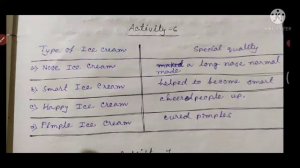 Activity-6
Type of Ice cream Special quality
a) Nose Ice Cream made a long nose normal
b) Smart Ice Cream helped to become smart
c) Happy Ice Cream cheered people up.
d) Pimple Ice Cream cured pimples